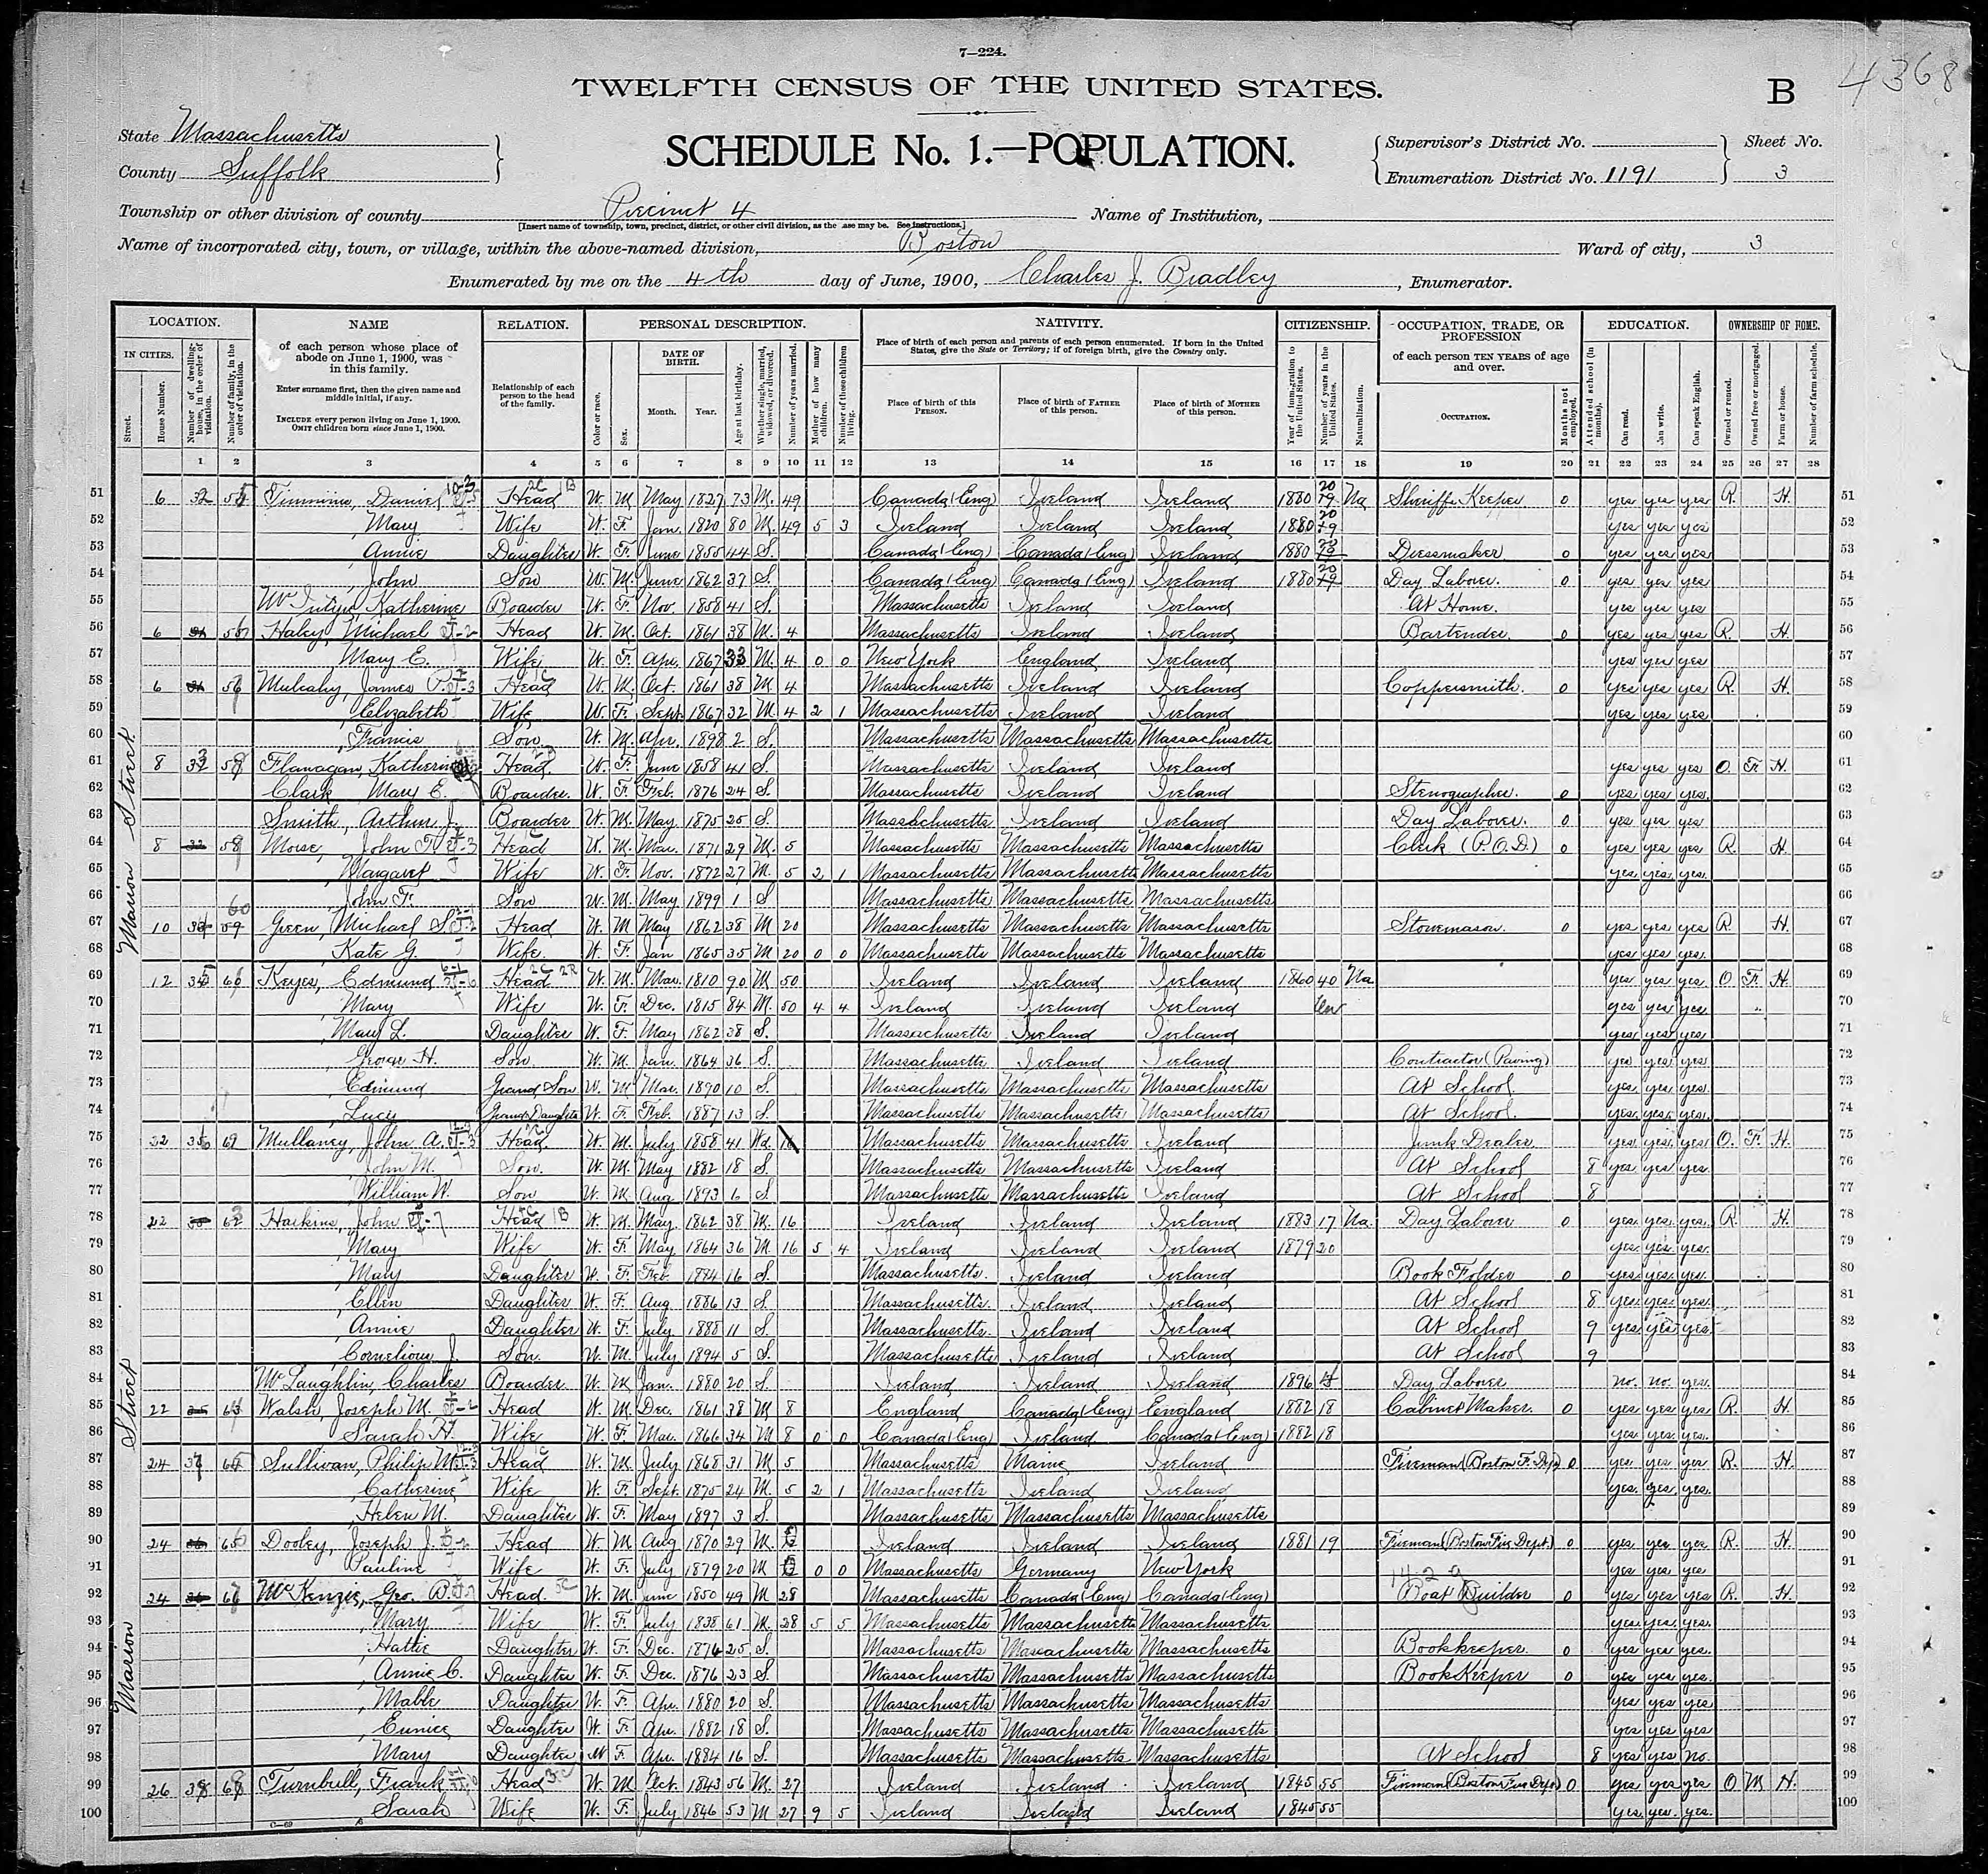 7—224.
4368
TWELFTH CENSUS OF THE UNITED STATES.
B
State Massachusetts
County Suffolk
SCHEDULE No. 1.—POPULATION.
Supervisor's District No.
Enumeration District No. 1191
Sheet No.
3
Township or other division of county Precinct 4
Name of Institution,
[Insert name of township, town, precinct, district, or other civil division, as the case may be. See instructions.]
Name of incorporated city, town, or village, within the above-named division, Boston
Ward of city, 3
Enumerated by me on the 4th day of June, 1900, Charles J. Bradley, Enumerator.
LOCATION. NAME RELATION. PERSONAL DESCRIPTION. NATIVITY. CITIZENSHIP. OCCUPATION, TRADE, OR PROFESSION EDUCATION. OWNERSHIP OF HOME.
IN CITIES.
Street.
House Number.
Number of dwelling-house, in the order of visitation.
Number of family, in the order of visitation.
of each person whose place of abode on June 1, 1900, was in this family.
Enter surname first, then the given name and middle initial, if any.
INCLUDE every person living on June 1, 1900.
OMIT children born since June 1, 1900.
Relationship of each person to the head of the family.
Color or race.
Sex.
DATE OF BIRTH.
Month. Year.
Age at last birthday.
Whether single, married, widowed, or divorced.
Number of years married.
Mother of how many children.
Number of these children living.
Place of birth of each person and parents of each person enumerated. If born in the United States, give the State or Territory; if of foreign birth, give the Country only.
Place of birth of this PERSON.
Place of birth of FATHER of this person.
Place of birth of MOTHER of this person.
Year of immigration to the United States.
Number of years in the United States.
Naturalization.
of each person TEN YEARS of age and over.
OCCUPATION.
Months not employed.
Attended school (in months).
Can read.
Can write.
Can speak English.
Owned or rented.
Owned free or mortgaged.
Farm or house.
Number of farm schedule.
1 2 3 4 5 6 7 8 9 10 11 12 13 14 15 16 17 18 19 20 21 22 23 24 25 26 27 28
Marion Street
51 6 32 Timmins, Daniel Head W. M. May 1827 73 M. 49 Canada (Eng) Ireland Ireland 1880 20 Na Sheriffs Keeper 0 yes yes yes R. H. 51
52 Mary Wife W. F. Jan. 1820 80 M. 49 5 3 Ireland Ireland Ireland 1880 20 yes yes yes 52
53 Annie Daughter W. F. June 1855 44 S. Canada (Eng) Canada (Eng) Ireland 1880 Dressmaker 0 yes yes yes 53
54 John Son W. M. June 1862 37 S. Canada (Eng) Canada (Eng) Ireland 1880 20 Day Laborer. 0 yes yes yes 54
55 Katherine Boarder W. F. Nov. 1858 41 S. Massachusetts Ireland Ireland At Home. yes yes yes 55
56 6 Haley, Michael Head W. M. Oct. 1861 38 M. 4 Massachusetts Ireland Ireland Bartender. 0 yes yes yes R. H. 56
57 Mary E. Wife W. F. Apr. 1867 33 M. 4 0 0 New York England Ireland yes yes yes 57
58 6 Mulcahy, James P. Head W. M. Oct. 1861 38 M 4 Massachusetts Ireland Ireland Coppersmith. 0 yes yes yes R. H. 58
59 Elizabeth Wife W. F. Sept. 1867 32 M 4 2 1 Massachusetts Ireland Ireland yes yes yes 59
60 Francis Son W. M. Apr. 1898 2 S. Massachusetts Massachusetts Massachusetts 60
61 8 Flanagan, Katherine Head W. F. June 1858 41 S. Massachusetts Ireland Ireland yes yes yes O. F. H. 61
62 Clark Mary E. Boarder. W. F. Feb. 1876 24 S. Massachusetts Ireland Ireland Stenographer. 0 yes yes yes. 62
63 Smith, Arthur J. Boarder W. M. May 1875 25 S. Massachusetts Ireland Ireland Day Laborer. 0 yes yes yes 63
64 8 Morse, John F. Head W. M. Mar. 1871 29 M. 5 Massachusetts Massachusetts Massachusetts Clerk (P.O.D.) 0 yes yes yes R. H. 64
65 Margaret Wife W. F. Nov. 1872 27 M. 5 2 1 Massachusetts Massachusetts Massachusetts yes yes yes. 65
66 John F. Son W. M. May 1899 1 S Massachusetts Massachusetts Massachusetts 66
67 10 60 Green, Michael S. Head W. M May 1862 38 M 20 Massachusetts Massachusetts Massachusetts Stonemason. 0 yes yes yes R. H. 67
68 Kate G. Wife. W. F. Jan 1865 35 M 20 0 0 Massachusetts Massachusetts Massachusetts yes yes yes. 68
69 12 Keyes, Edmund Head W. M. Mar. 1810 90 M 50 Ireland Ireland Ireland 1860 40 Na yes yes yes O F. H. 69
70 Mary Wife W. F. Dec. 1815 84 M. 50 4 4 Ireland Ireland Ireland yes yes yes 70
71 Mary L. Daughter W. F. May 1862 38 S. Massachusetts Ireland Ireland yes yes yes 71
72 George H. Son W. M. Jan. 1864 36 S. Massachusetts Ireland Ireland Contractor (Paving) yes yes yes 72
73 Edmund Grand Son W. M Mar. 1890 10 S. Massachusetts Massachusetts Massachusetts At School. yes. yes yes. 73
74 Lucy Grand Daughter W. F. Feb. 1887 13 S. Massachusetts Massachusetts Massachusetts At School. yes. yes. yes. 74
75 22 Mullaney, John A. Head. W. M. July 1858 41 Wd. Massachusetts Massachusetts Ireland Junk Dealer yes yes. yes O. F. H. 75
76 John M. Son. W. M. May 1882 18 S. Massachusetts Massachusetts Ireland At School 8 yes yes yes. 76
77 William W. Son W. M. Aug 1893 6 S. Massachusetts Massachusetts Ireland At School 8 77
78 22 Harkins, John Head W. M. May. 1862 38 M. 16 Ireland Ireland Ireland 1883 17 Na. Day Laborer 0 yes. yes. yes. R. H. 78
79 Mary Wife W. F. May 1864 36 M. 16 5 4 Ireland Ireland Ireland 1879 20 yes. yes. yes. 79
80 Mary Daughter W. F. Feb. 1884 16 S. Massachusetts. Ireland Ireland Book Folder 0 yes. yes. yes. 80
81 Ellen Daughter W. F. Aug 1886 13 S. Massachusetts. Ireland Ireland At School 8 yes. yes. yes. 81
82 Annie Daughter W. F. July 1888 11 S. Massachusetts. Ireland Ireland At School 9 yes. yes yes. 82
83 Cornelious J. Son. W. M. July 1894 5 S. Massachusetts Ireland Ireland At School 9 83
84 McLaughlin, Charles Boarder W. M Jan. 1880 20 S. Ireland Ireland Ireland 1896 Day Laborer no. no. yes. 84
85 22 Walsh, Joseph M. Head W. M. Dec. 1861 38 M 8 England Canada (Eng) England 1882 18 Cabinet Maker. 0 yes. yes yes R. H. 85
86 Sarah H. Wife W. F. Mar. 1866 34 M 8 0 0 Canada (Eng) Ireland Canada (Eng) 1882 18 yes. yes yes. 86
87 24 Sullivan, Philip M. Head W. M. July 1868 31 M 5 Massachusetts Maine Ireland Fireman (Boston F. Dept) 0 yes yes yes R. H. 87
88 Catherine Wife W. F. Sept. 1875 24 M. 5 2 1 Massachusetts Ireland Ireland yes. yes. yes. 88
89 Helen M. Daughter W. F. May 1897 3 S. Massachusetts Massachusetts Massachusetts 89
90 24 Dooley, Joseph J. Head W. M. Aug 1870 29 M. Ireland Ireland Ireland 1881 19 Fireman (Boston Fire Dept.) 0 yes yes yes R. H. 90
91 Pauline Wife W. F. July 1879 20 M 0 0 Massachusetts Germany New York yes yes yes 91
92 24 McKenzie, Geo. Head. W. M. June 1850 49 M 28 Massachusetts Canada (Eng) Canada (Eng) Boat Builder 0 yes yes yes R. H. 92
93 Mary Wife W. F. July 1838 61 M. 28 5 5 Massachusetts Massachusetts Massachusetts yes yes yes. 93
94 Hattie Daughter W. F. Dec. 1874 25 S. Massachusetts Massachusetts Massachusetts Bookkeeper. 0 yes yes yes. 94
95 Annie C. Daughter W. F. Dec. 1876 23 S Massachusetts Massachusetts Massachusetts BookKeeper 0 yes yes yes. 95
96 Mable Daughter W. F. Apr. 1880 20 S. Massachusetts Massachusetts Massachusetts yes yes yes 96
97 Eunice Daughter W. F. Apr. 1882 18 S. Massachusetts Massachusetts Massachusetts yes yes yes 97
98 Mary Daughter W F. Apr. 1884 16 S. Massachusetts Massachusetts Massachusetts At School 8 yes yes no. 98
99 26 Turnbull, Frank Head W. M Oct. 1843 56 M. 27 Ireland Ireland Ireland 1845 55 Fireman (Boston Fire Dept) 0 yes yes yes O M H. 99
100 Sarah Wife W. F. July 1846 53 M 27 9 5 Ireland Ireland Ireland 1845 55 yes. yes. yes. 100
Marion Street